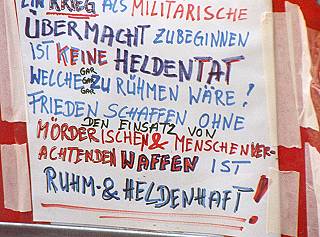 EIN KRIEG ALS MILITARISCHE
ÜBERMACHT ZUBEGINNEN
IST KEINE HELDENTAT
GAR
WELCHE GAR ZU RÜHMEN WÄRE!
GAR
FRIEDEN SCHAFFEN OHNE
DEN EINSATZ VON
MÖRDERISCHEN & MENSCHENVER-
ACHTENDEN WAFFEN IST
RUHM- & HELDENHAFT!